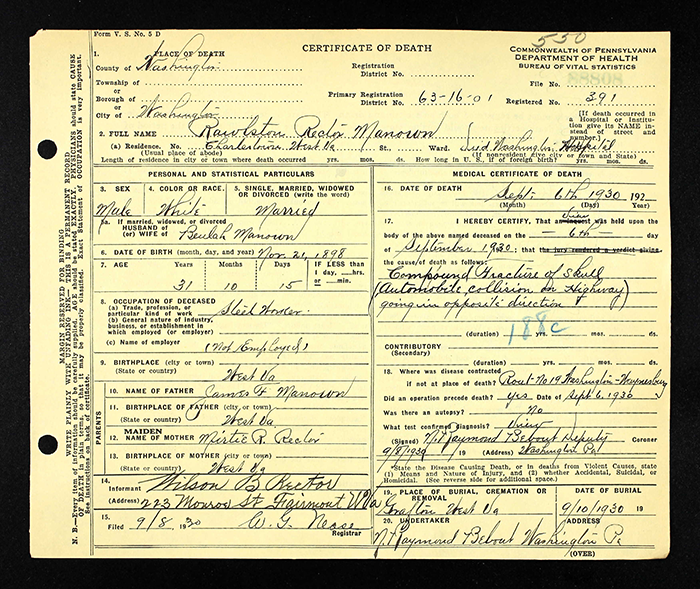 Form V. S. No. 5 D
550
1. PLACE OF DEATH
CERTIFICATE OF DEATH
COMMONWEALTH OF PENNSYLVANIA
DEPARTMENT OF HEALTH
BUREAU OF VITAL STATISTICS
County of Washington
Registration District No.
File No. 88808
Township of
or
Borough of
Primary Registration District No. 63-16-01
Registered No. 391
or
City of Washington
[If death occurred in a Hospital or Institution give its NAME instead of street and number.]
2. FULL NAME Rawlston Rector Manown
(a) Residence. No. Charlestown West Va St., Ward. Died Washington Hospital
(Usual place of abode)
(If nonresident give city or town and State)
Length of residence in city or town where death occurred yrs. mos. ds. How long in U. S., if of foreign birth? yrs. mos. ds.
PERSONAL AND STATISTICAL PARTICULARS
3. SEX
4. COLOR OR RACE.
5. SINGLE, MARRIED, WIDOWED OR DIVORCED (write the word)
Male White Married
5a. If married, widowed, or divorced
HUSBAND of
(or) WIFE of Beulah Manown
6. DATE OF BIRTH (month, day, and year) Nov. 21, 1898
7. AGE
If LESS than
1 day,....hrs.
or....min.
31 10 15
8. OCCUPATION OF DECEASED
(a) Trade, profession, or particular kind of work Steel Worker
(b) General nature of industry, business, or establishment in which employed (or employer)
(c) Name of employer (Not Employed)
9. BIRTHPLACE (city or town)
(State or country) West Va
PARENTS
10. NAME OF FATHER James F Manown
11. BIRTHPLACE OF FATHER (city or town)
(State or country) West Va
12. MAIDEN NAME OF MOTHER Mirtie R. Rector
13. BIRTHPLACE OF MOTHER (city or town)
(State or country) West Va
14. Informant Wilson B Rector
(Address) 223 Monroe St Fairmont W Va
15. Filed 9/8, 1930 W. T. Nease
Registrar
MEDICAL CERTIFICATE OF DEATH
16. DATE OF DEATH Sept. 6th 1930 192
(Month) (Day) (Year)
17. I HEREBY CERTIFY, That an inquest was held upon
View
the body of the above named deceased on the 6th day
of September 1930: that the jury rendered a verdict giving
the cause of death as follows:
Compound Fracture of Skull
(Automobile collision on Highway
going in opposite direction)
188c
(duration) yrs. mos. ds.
CONTRIBUTORY
(Secondary)
(duration) yrs. mos. ds.
18. Where was disease contracted
if not at place of death? Rout-No 19 Washington-Waynesburg
Did an operation precede death? Yes Date of Sept 6, 1930
Was there an autopsy? No
What test confirmed diagnosis? View
(Signed) N. Raymond Bebout Deputy Coroner
9/8/1930 19 (Address) Washington Pa
*State the Disease Causing Death, or in deaths from Violent Causes, state (1) Means and Nature of Injury, and (2) whether Accidental, Suicidal, or Homicidal. (See reverse side for additional space.)
19. PLACE OF BURIAL, CREMATION OR REMOVAL
DATE OF BURIAL
Grafton West Va 9/10/1930 19
20. UNDERTAKER
ADDRESS
N. Raymond Bebout Washington Pa
(OVER)
MARGIN RESERVED FOR BINDING
WRITE PLAINLY WITH UNFADING INK—THIS IS A PERMANENT RECORD
N. B.—Every item of information should be carefully supplied. AGE should be stated EXACTLY. PHYSICIANS should state CAUSE OF DEATH in plain terms, so that it may be properly classified. Exact Statement of OCCUPATION is very important. See instructions on back of certificate.